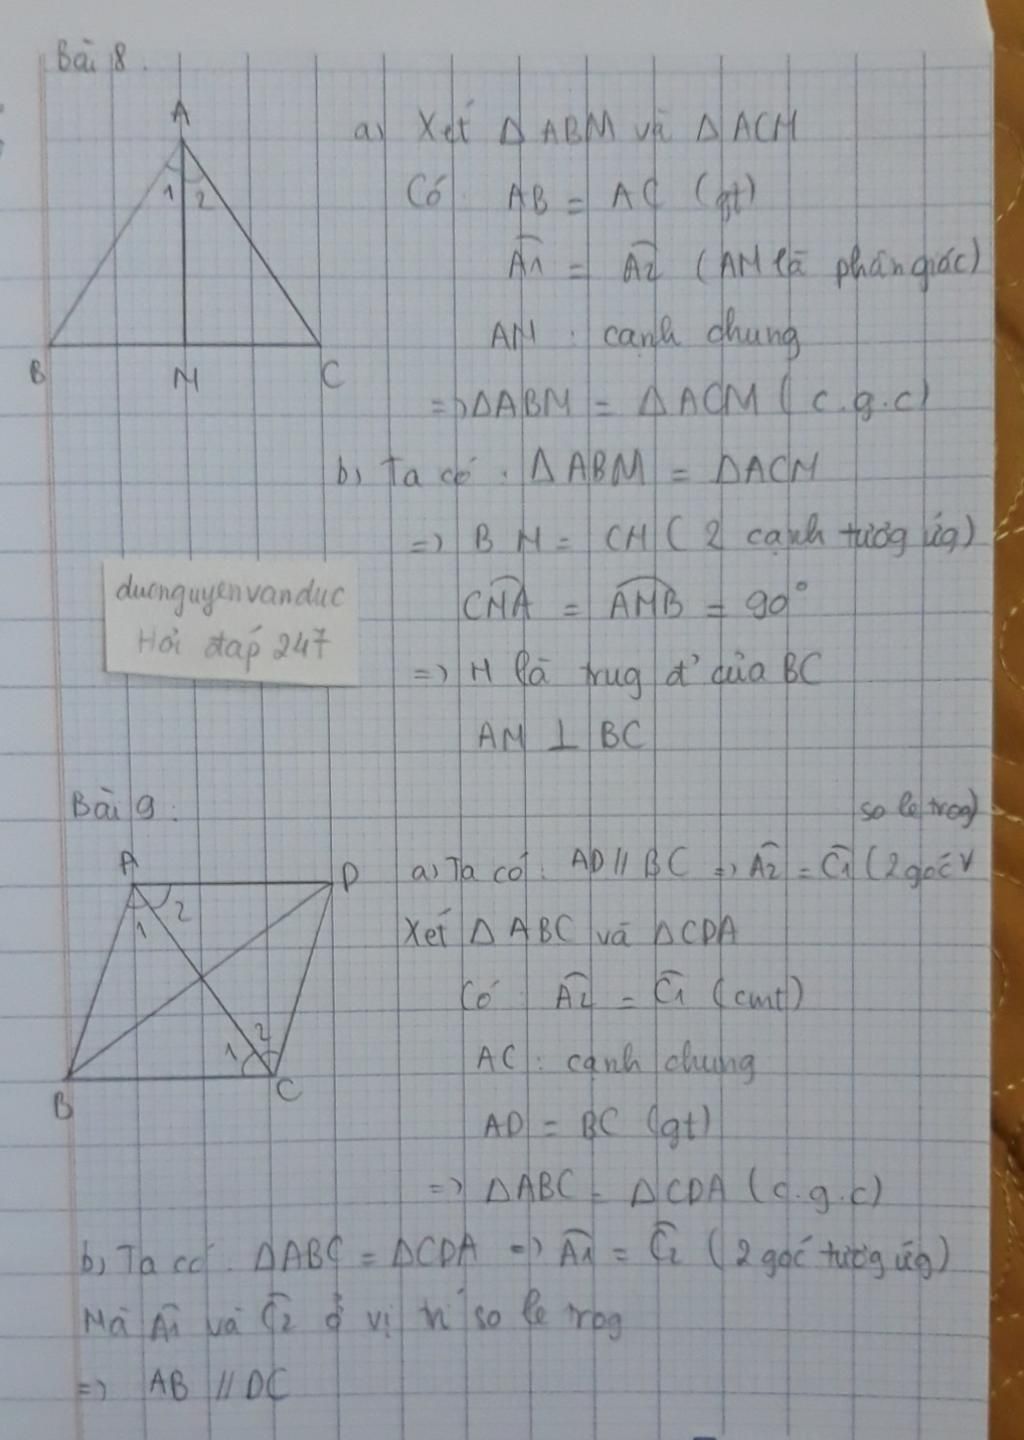 Bài 8.
A
1 2
B M C
a) Xét Δ ABM và Δ ACM
Có: AB = AC (gt)
Â1 = Â2 (AM là phân giác)
AM : cạnh chung
=> ΔABM = ΔACM (c.g.c)
b) Ta có: ΔABM = ΔACM
=> BM = CM (2 cạnh tươg ứg)
CMA = AMB = 90°
=> M là trug đ' của BC
AM ⊥ BC
ducnguyenvanduc
Hỏi đáp 247
Bài 9:
A D
1 2
1 2
B C
so le trog)
a) Ta có: AD // BC => Â2 = Ĉ1 (2 góc
Xét Δ ABC và ΔCDA
Có: Â2 = Ĉ1 (cmt)
AC : cạnh chung
AD = BC (gt)
=> ΔABC = ΔCDA (c.g.c)
b) Ta có: ΔABC = ΔCDA => Â1 = Ĉ2 (2 góc tươg ứg)
Mà Â1 và Ĉ2 ở vị trí so le trog
=> AB // DC